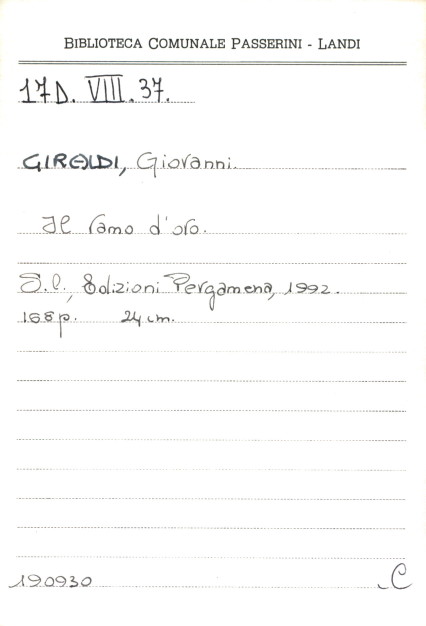 BIBLIOTECA COMUNALE PASSERINI - LANDI
17D. VIII. 37.
GIRALDI, Giovanni.
Il ramo d'oro.
S.l., Edizioni Pergamena, 1992.
168p. 24 cm.
190930 C